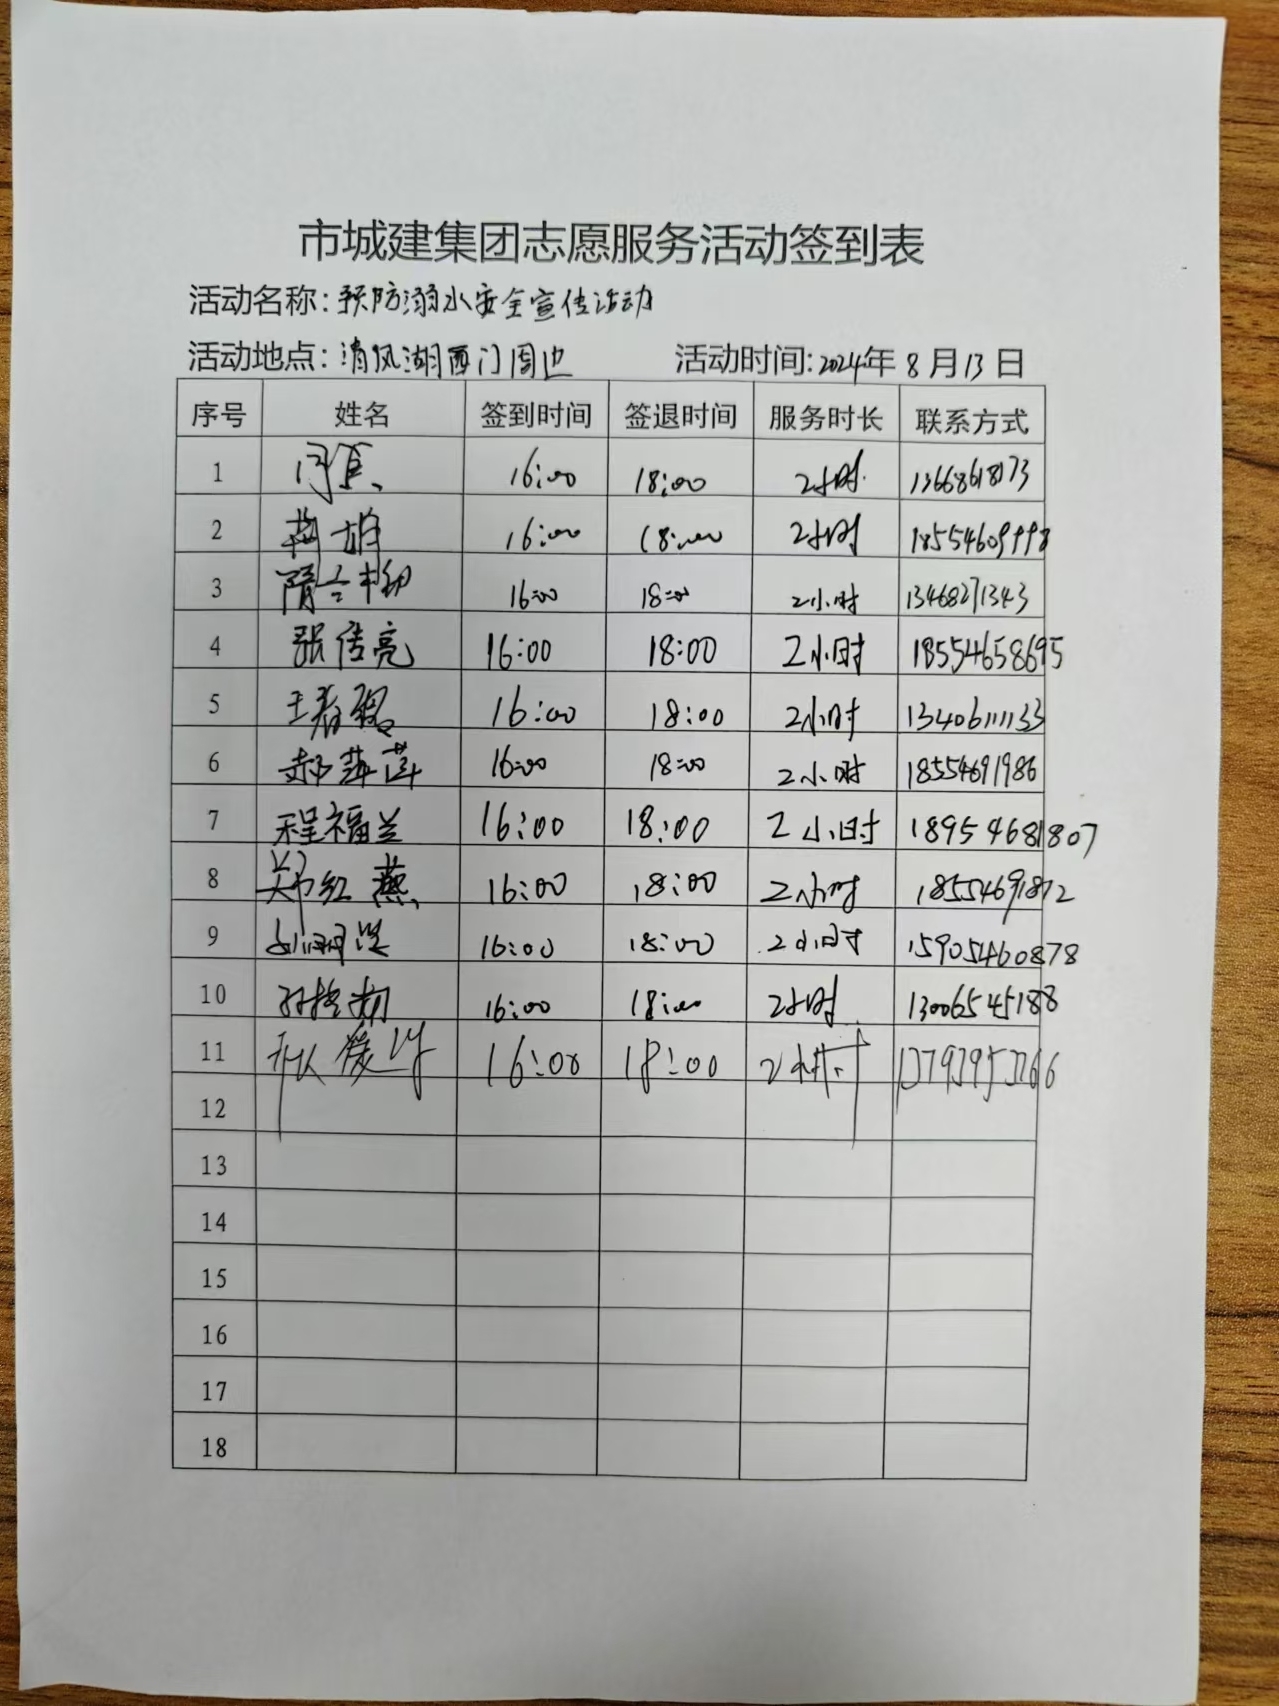 市城建集团志愿服务活动签到表
活动名称：预防溺水安全宣传活动
活动地点：清风湖西门周边 活动时间：2024年8月13日
序号 姓名 签到时间 签退时间 服务时长 联系方式
1 闫真 16:00 18:00 2小时 13668618173
2 16:00 18:00 2小时 18554609998
3 隋 16:00 18:00 2小时 13468271343
4 张传亮 16:00 18:00 2小时 18554658695
5 王春 16:00 18:00 2小时 13406111133
6 郝萍萍 16:00 18:00 2小时 18554691986
7 程福兰 16:00 18:00 2小时 18954681807
8 郑红燕 16:00 18:00 2小时 18554691812
9 16:00 18:00 2小时 15905460878
10 16:00 18:00 2小时 13006545188
11 16:00 18:00 2小时
12
13
14
15
16
17
18